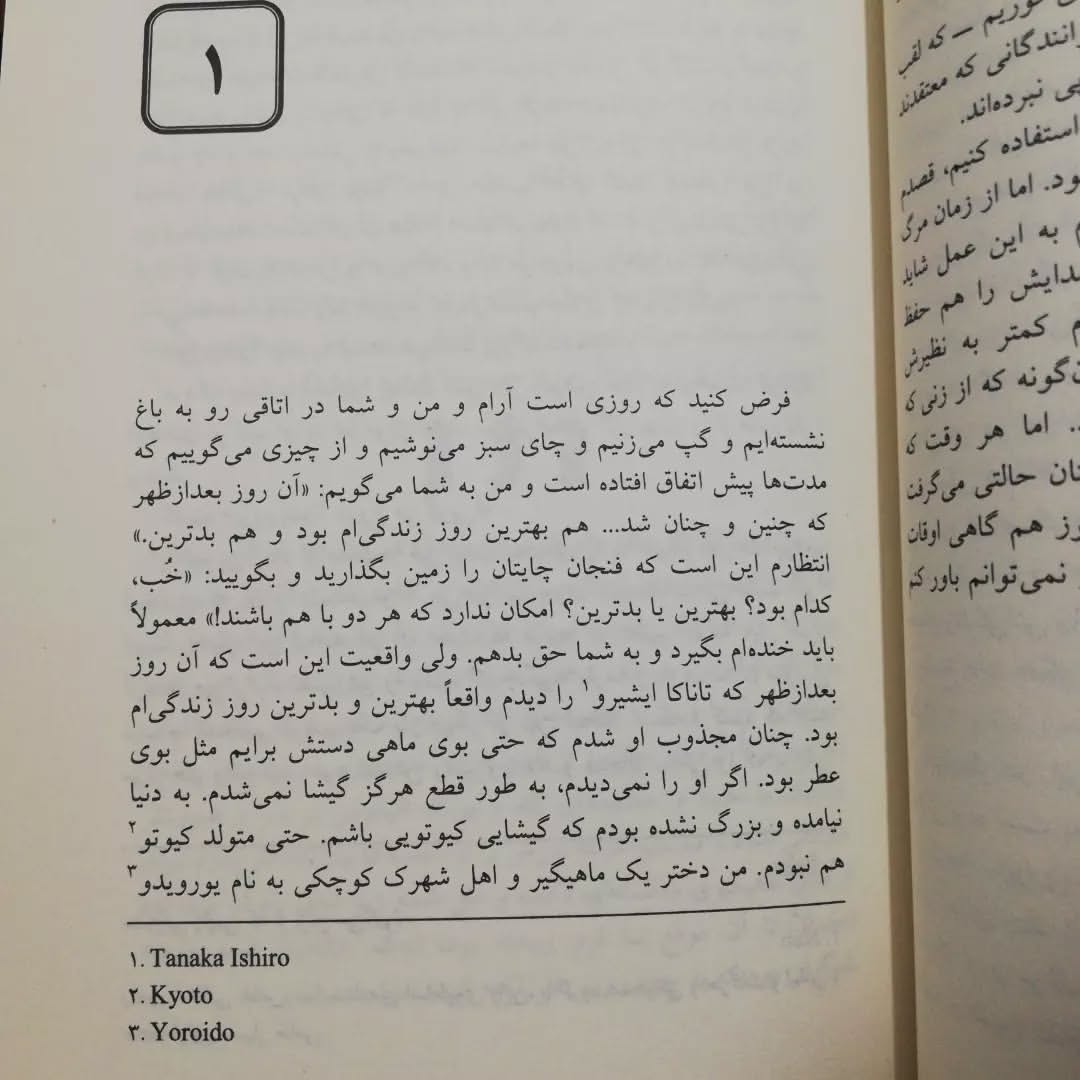 ۱
فرض کنید که روزی است آرام و من و شما در اتاقی رو به باغ
نشسته‌ایم و گپ می‌زنیم و چای سبز می‌نوشیم و از چیزی می‌گوییم که
مدت‌ها پیش اتفاق افتاده است و من به شما می‌گویم: «آن روز بعدازظهر
که چنین و چنان شد... هم بهترین روز زندگی‌ام بود و هم بدترین.»
انتظارم این است که فنجان چایتان را زمین بگذارید و بگویید: «خُب،
کدام بود؟ بهترین یا بدترین؟ امکان ندارد که هر دو با هم باشند!» معمولاً
باید خنده‌ام بگیرد و به شما حق بدهم. ولی واقعیت این است که آن روز
بعدازظهر که تاناکا ایشیرو۱ را دیدم واقعاً بهترین و بدترین روز زندگی‌ام
بود. چنان مجذوب او شدم که حتی بوی ماهی دستش برایم مثل بوی
عطر بود. اگر او را نمی‌دیدم، به طور قطع هرگز گیشا نمی‌شدم. به دنیا
نیامده و بزرگ نشده بودم که گیشایی کیوتویی باشم. حتی متولد کیوتو۲
هم نبودم. من دختر یک ماهیگیر و اهل شهرک کوچکی به نام یورویدو۳
۱. Tanaka Ishiro
۲. Kyoto
۳. Yoroido
خوریم – که لقب
که معتقدند
نبرده‌اند.
استفاده کنیم، قصدم
اما از زمان مرگ
به این عمل شاید
را هم حفظ
کمتر به نظیرش
که از زنی که
اما هر وقت که
حالتی می‌گرفت
هم گاهی اوقات
نمی‌توانم باور کنم